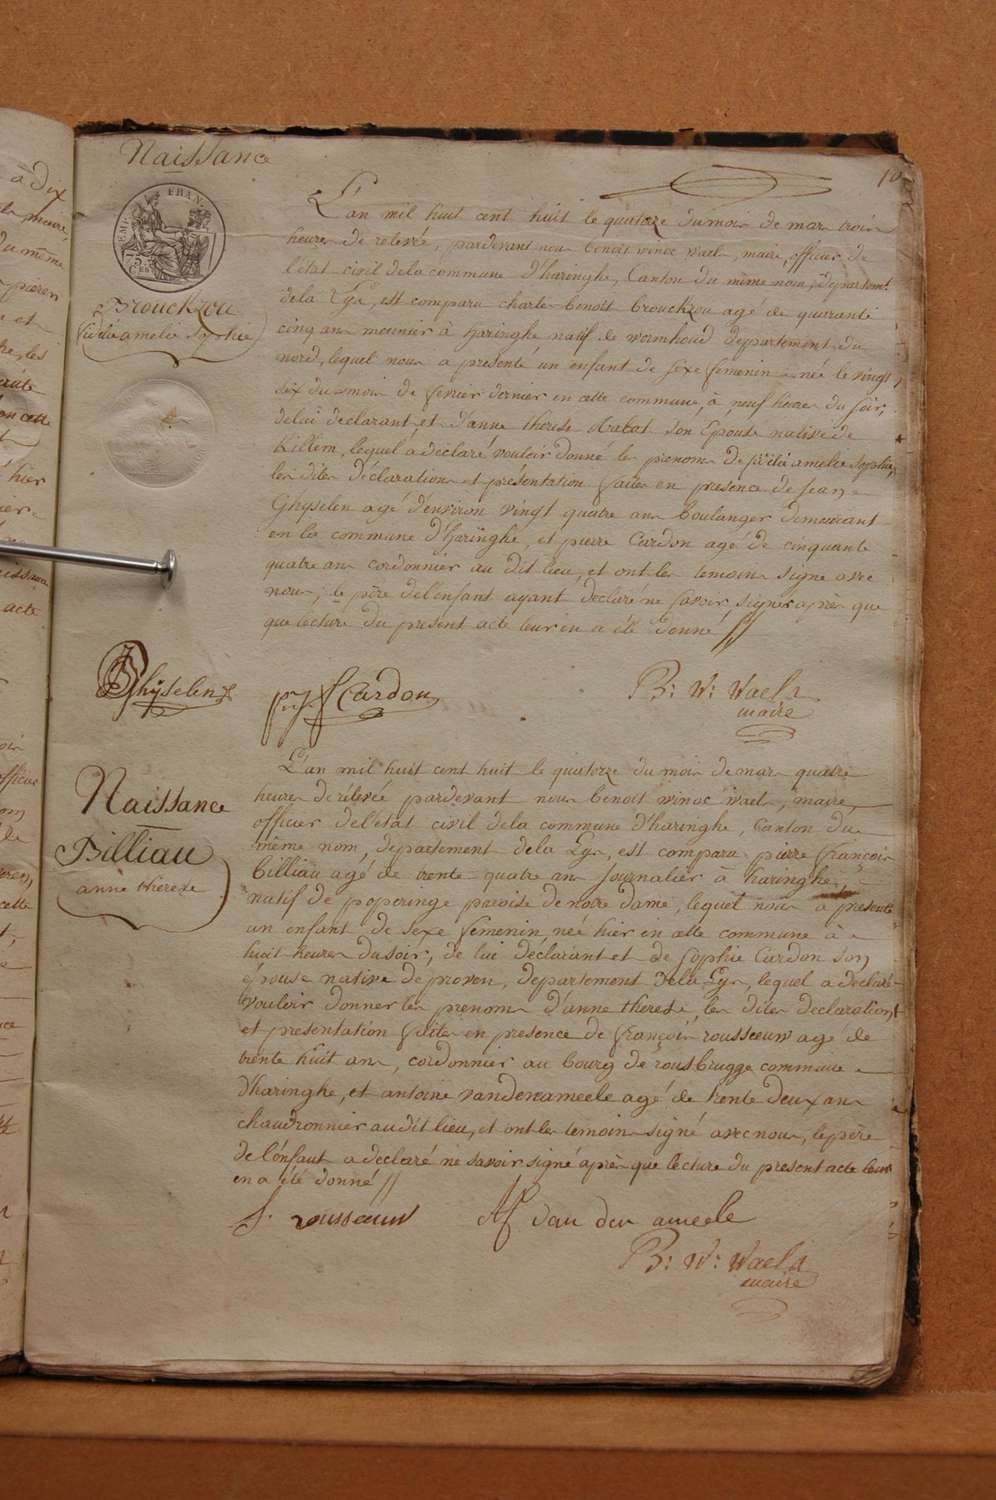 Naissance
10
FRAN
Brouckxou
Sicilia amelie Sophie
L'an mil huit cent huit le quatorze du mois de mars trois
heures de relevée, pardevant nous benoit winoc Wael, maire, officier de
l'état civil dela commune d'haringhe, Canton du même nom, départemt.
dela Lys, est comparu charles benoit brouckxou agé de quarante
cinq ans meunier à haringhe natif de wormhoud departement du
nord, lequel nous a presenté un enfant de sexe femenin née le vingt
six du mois de fevrier dernier en cette commune, à neuf heures du soir,
de lui declarant, et d'anne therese Rabat son Epouse native de
Killem, lequel a déclaré vouloir donné les prenoms de Sicilia amelie Sophie,
les dites déclaration et présentation faites en presence de Jean
Ghyselen agé d'environ vingt quatre ans boulanger demeurant
en la commune d'haringhe, et pierre Cardon agé de cinquante
quatre ans cordonnier au dit lieu, et ont les temoins signé avec
nous, le père de l'enfant ayant declaré ne savoir signer après que
que lecture du present acte leur en a été donné //
JB Ghyselen
Cardon
B: W: Wael
maire
Naissance
Billiau
anne therese
L'an mil huit cent huit le quatorze du mois de mars quatre
heures de relevée pardevant nous benoit winoc wael, maire,
officier de l'état civil dela commune d'haringhe, Canton du
même nom, departement dela Lys, est comparu pierre françois
billiau agé de trente quatre ans journalier a haringhe,
natif de poperinge paroise de notre dame, lequel nous a presenté
un enfant de sexe femenin, née hier en cette commune à
huit heures du soir, de lui déclarant et de Sophie Cardon son
épouse native de proven, departement dela Lys, lequel a déclaré
vouloir donner les prenoms d'anne therese, les dites declaration
et presentation faites en presence de françois rousseeuw agé de
trente huit ans, cordonnier au bourg de rousbrugge commune
d'haringhe, et antoine vanderameele agé de trente deux ans
chaudronnier audit lieu, et ont les temoins signé avec nous, le père
de l'enfant a declaré ne savoir signé après que lecture du present acte leur
en a été donné //
f. rousseeuw
AJ van der ameele
B: W: Wael
maire